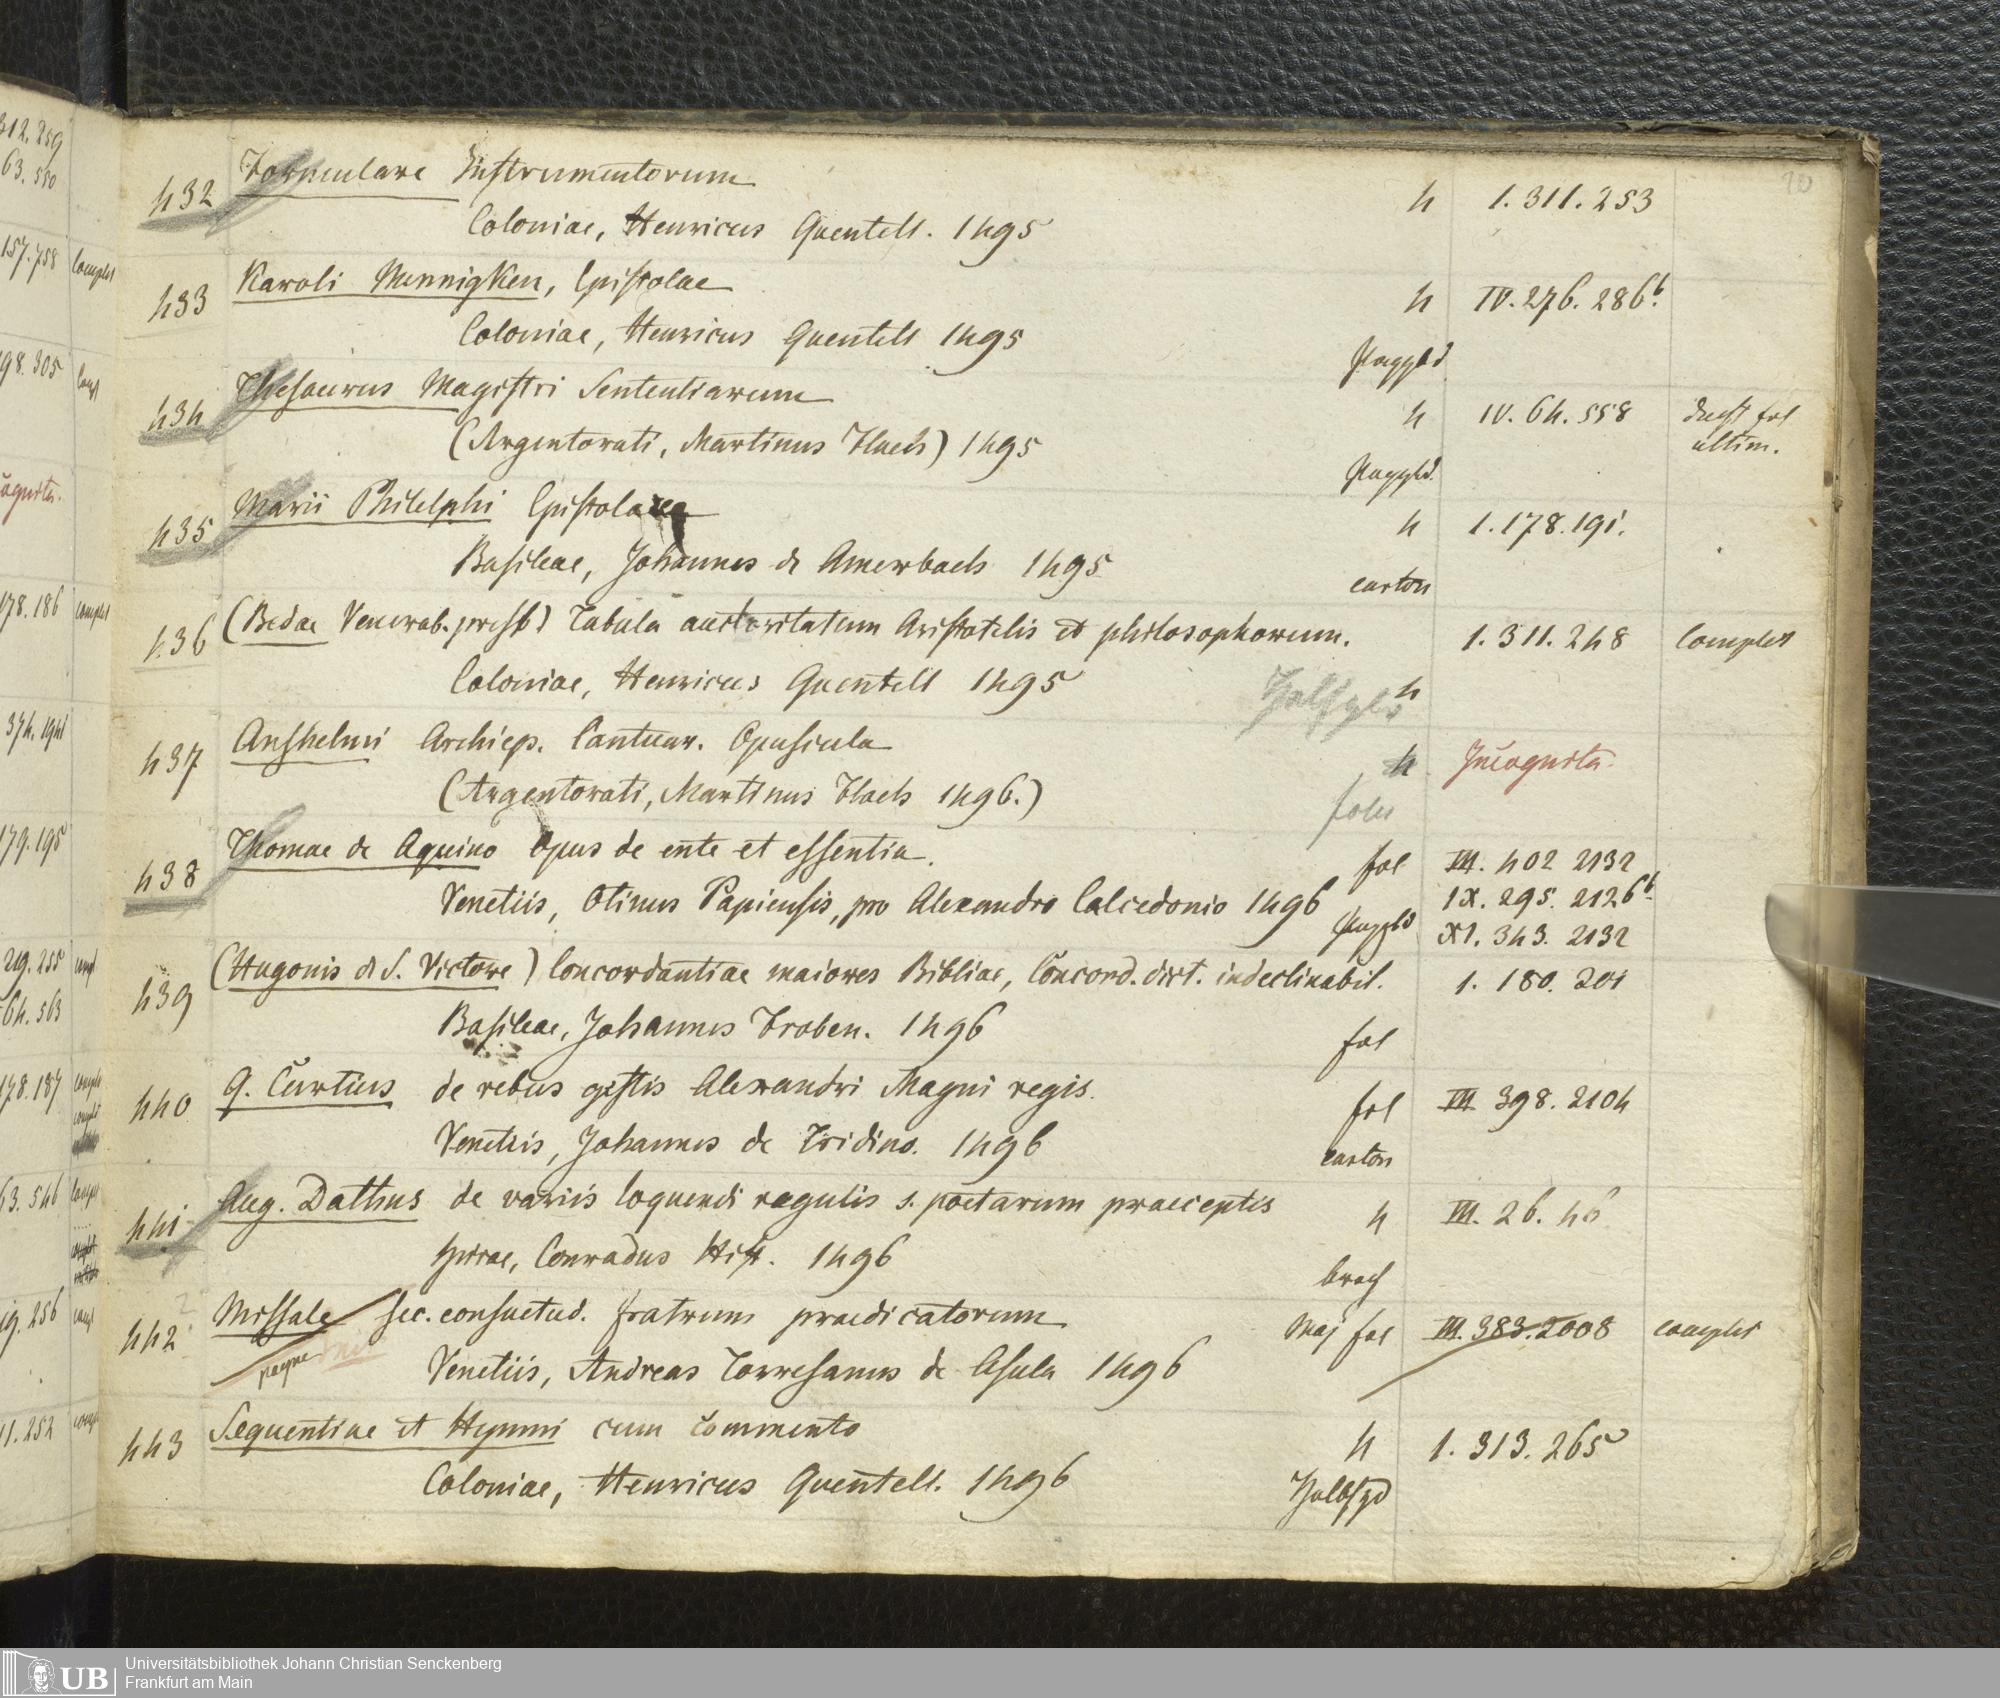 20
432 Formulare Instrumentorum 4 1. 311. 253
Coloniae, Henricus Quentell. 1495
433 Karoli Mennigken, Epistolae 4 IV. 276. 286b.
Coloniae, Henricus Quentell 1495 Pappbd
434 Thesaurus Magistri Sententiarum 4 IV. 64. 558 deest fol
(Argentorati, Martinus Flach) 1495 Pappbd. ultim.
435 Marii Philelphi Epistolare 4 1. 178. 191.
Basileae, Johannes de Amerbach 1495 carton
436 (Bedae Venerab. presb) Tabula auctoritatum Aristotelis et philosophorum. 1. 311. 248 complet
Coloniae, Henricus Quentell 1495 Halbfzbd 4
437 Anshelmi Archiep. Cantuar. Opuscula 4 Incognita.
(Argentorati, Martinus Flach 1496.)
438 Thomae de Aquino Opus de ente et essentia. fol III. 402 2132
Venetiis, Otinus Papiensis, pro Alexandro Calcedonio 1496 Pappbd IX. 295. 2126b.
XI. 343. 2132
439 (Hugonis de S. Victore) Concordantiae maiores Bibliae, Concord. dict. indeclinabil. 1. 180. 201
Basileae, Johannes Froben. 1496 fol
440 Q. Curtius de rebus gestis Alexandri Magni regis. fol III 398. 2104
Venetiis, Johannes de Tridino. 1496 carton
441 Aug. Dathus de variis loquendi regulis s. poetarum praeceptis 4 III. 26. 46
Spirae, Conradus Hist. 1496 broch
442 2 Missale sec. consuetud. fratrum praedicatorum Maj fol III. 383. 2008 complet
Venetiis, Andreas Torresanus de Asula 1496
443 Sequentiae et Hymni cum commento 4 1. 313. 265
Coloniae, Henricus Quentell. 1496
312. 259
63. 550
157. 758 complet
98. 305
178. 186 complet
374. 1941
179. 195
219. 255
64. 563
178. 187
63. 546
19. 256
11. 252
UB Universitätsbibliothek Johann Christian Senckenberg
Frankfurt am Main